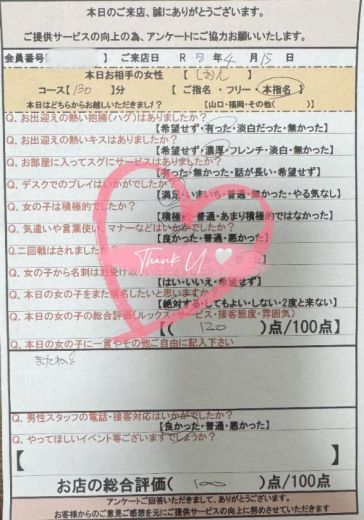 本日のご来店、誠にありがとうございます。
ご提供サービスの向上の為、アンケートにご協力お願いいたします。
会員番号 ご来店日 R 8年 4月 15日
本日お相手の女性 [しおん]
コース[130]分 [ご指名・フリー・本指名]
本日はどちらからお越しいただきましたか? [山口・福岡・その他( )]
Q. お出迎えの熱い抱擁(ハグ)はありましたか?
【希望せず・有った・淡白だった・無かった】
Q. お出迎えの熱いキスはありましたか?
【希望せず・濃厚・フレンチ・淡白・無かった】
Q. お部屋に入ってスグにサービスはありましたか?
【有った・無かった・話が長い・希望せず】
Q. デスクでのプレイはいかがでしたか?
【満足・いまいち・普通・無かった・やる気なし】
Q. 女の子は積極的でしたか?
【積極的・普通・あまり積極的ではなかった】
Q. 気遣いや言葉使い、マナーなどはいかがでしたか?
【良かった・普通・悪かった】
Q.二回戦はされましたか?
Thank U
Q. 女の子から名刺はお受け取りいただきましたか?
【はい・いいえ・希望せず】
Q. 本日の女の子をまた指名したいと思いますか?
【絶対する・してもよい・しない・2度と来ない】
Q. 本日の女の子の総合評価(ルックス・サービス・接客態度・雰囲気)
【( 120 )点/100点】
Q. 本日の女の子に一言やその他ご自由に記入下さい
またね
Q. 男性スタッフの電話・接客対応はいかがでしたか?
【良かった・普通・悪かった】
Q. やってほしいイベント等ございますでしょうか?
【 】
お店の総合評価( 100 )点/100点
アンケートご回答いただきまして、ありがとうございます。
お客様からのご意見ご感想を元にご提供サービスの向上に努めさせていただきます